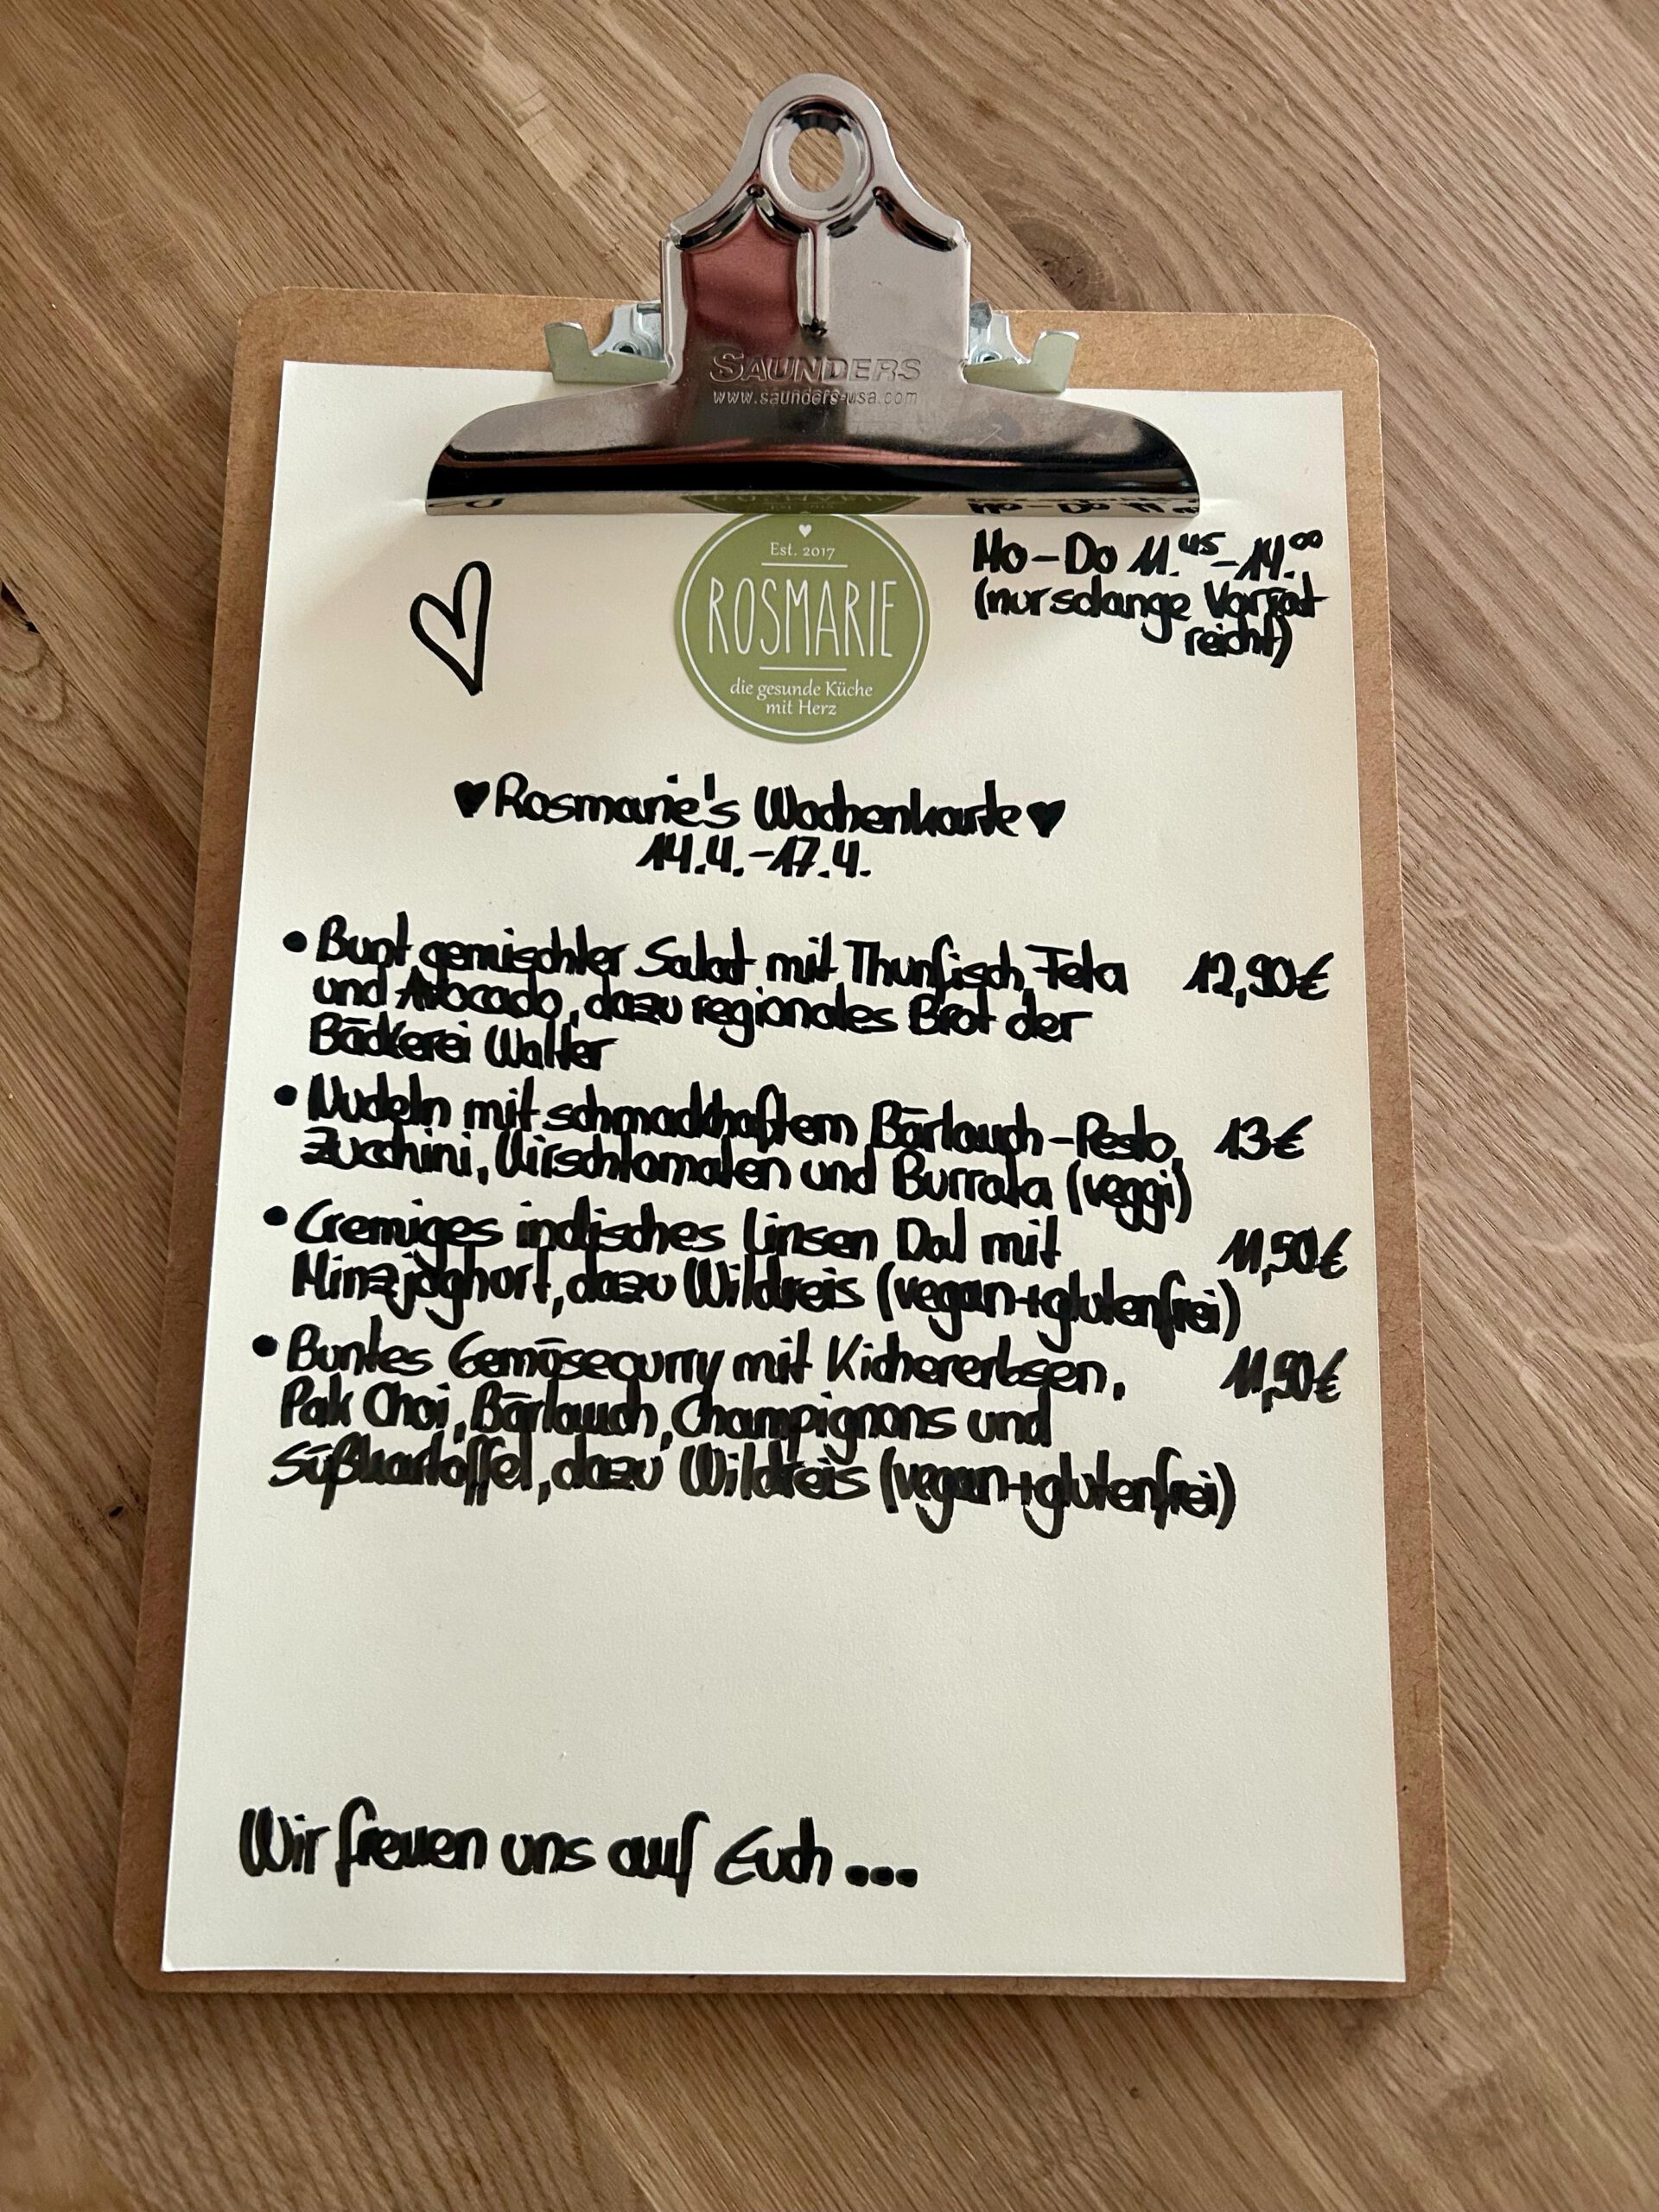 SAUNDERS
www.saunders-usa.com
Est. 2017
ROSMARIE
die gesunde Küche
mit Herz
Mo-Do 11.45-14.00
(nur solange Vorrat
reicht)
♥Rosmarie's Wochenkarte♥
14.4.-17.4.
• Bunt gemischter Salat mit Thunfisch, Feta 12,90€
und Avocado, dazu regionales Brot der
Bäckerei Walter
• Nudeln mit schmackhaftem Bärlauch-Pesto, 13€
Zucchini, Kirschtomaten und Burrata (veggi)
• Cremiges indisches Linsen Dal mit 11,50€
Minzjoghurt, dazu Wildreis (vegan+glutenfrei)
• Buntes Gemüsecurry mit Kichererbsen, 11,90€
Pak Choi, Bärlauch, Champignons und
Süßkartoffel, dazu Wildreis (vegan+glutenfrei)
Wir freuen uns auf Euch...